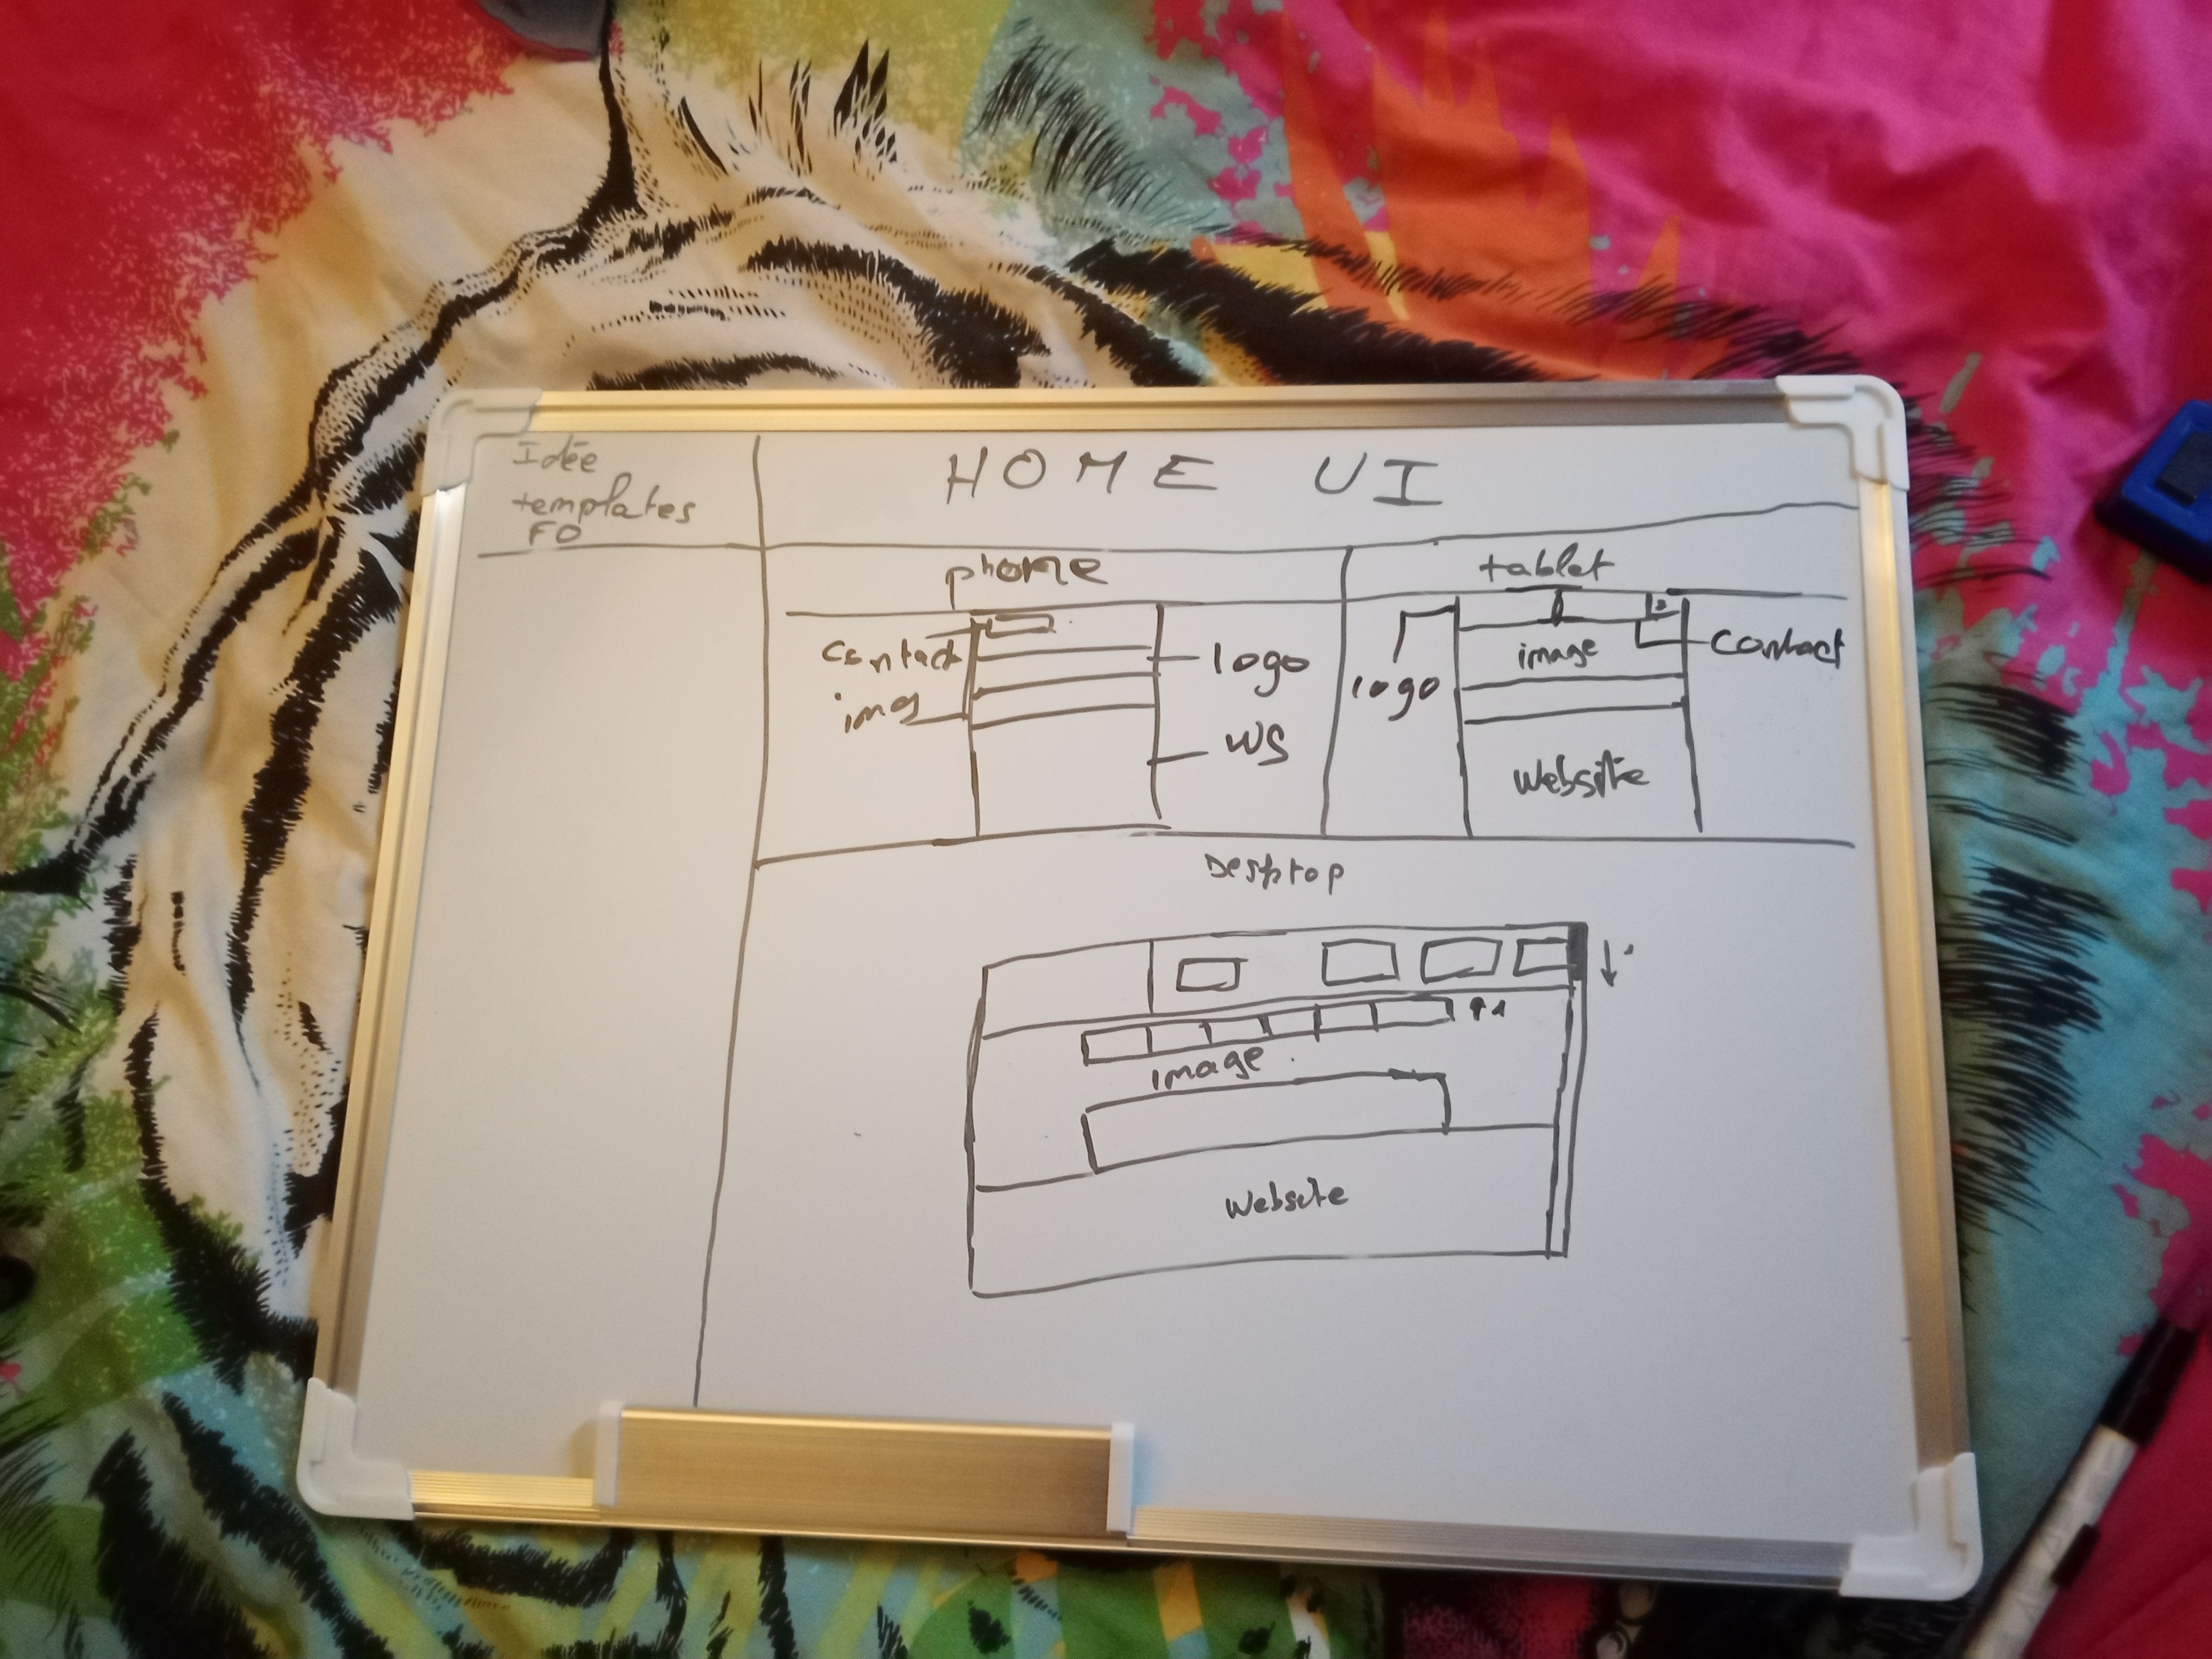 Idée
templates
FO
HOME UI
phone
contact
img
logo
WS
tablet
logo
image
contact
website
Desktop
image
website